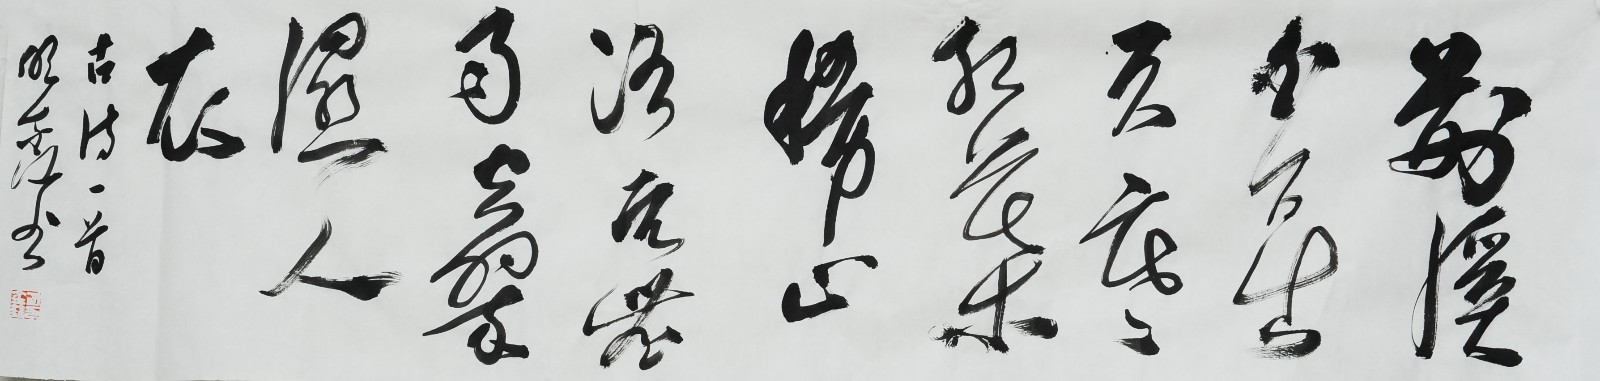 荆溪
白石出
天寒
紅葉
稀山
路元無
雨空翠
濕人
衣
古诗一首
书